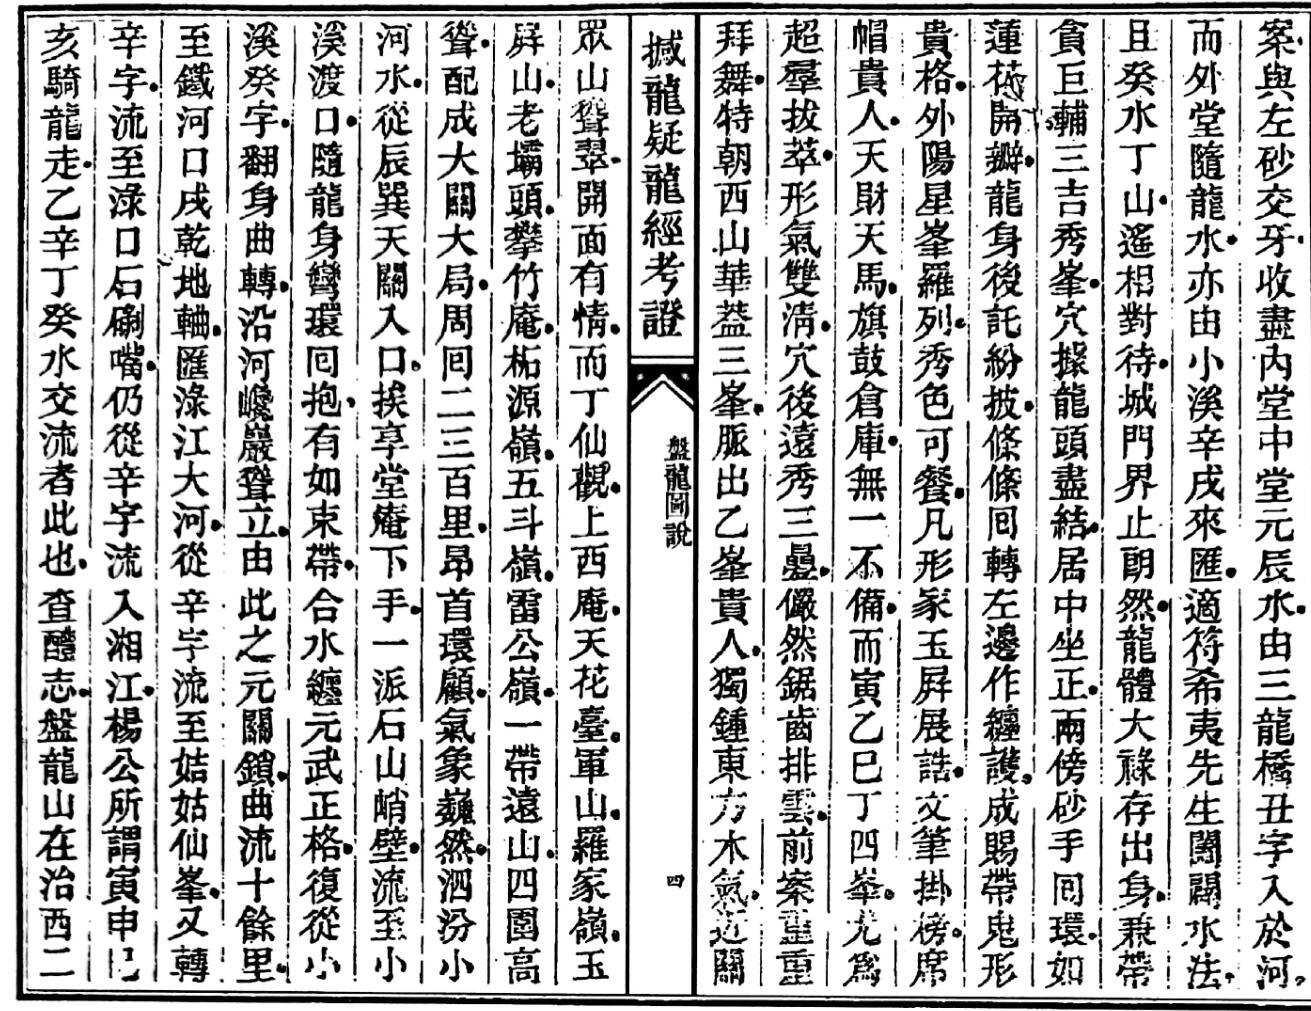 案與左砂交牙收盡內堂中堂元辰水由三龍橋丑字入於河
而外堂隨龍水亦由小溪辛戌來匯適符希夷先生闔闢水法
且癸水丁山遙相對待城門界止朗然龍體大祿存出身兼帶
貪巨輔三吉秀峯穴據龍頭盡結居中坐正兩傍砂手囘環如
蓮花開瓣龍身後託紛披條條囘轉左邊作纏護成賜帶鬼形
貴格外陽星峯羅列秀色可餐凡形家玉屛展誥文筆掛榜席
帽貴人天財天馬旗鼓倉庫無一不備而寅乙巳丁四峯尤爲
超羣拔萃形氣雙淸穴後遠秀三疊儼然鋸齒排雲前案重重
拜舞特朝西山華蓋三峯脈出乙峯貴人獨鍾東方木氣近關
撼龍疑龍經考證
盤龍圖說
四
眾山聳翠開面有情而丁仙觀上西庵天花臺軍山羅家嶺玉
屛山老壩頭攀竹庵柘源嶺五斗嶺雷公嶺一帶遠山四圍高
聳配成大關大局周囘二三百里昂首環顧氣象巍然泗汾小
河水從辰巽天關入口挨享堂庵下手一派石山峭壁流至小
溪渡口隨龍身彎環囘抱有如束帶合水纏元武正格復從小
溪癸字翻身曲轉沿河巉巖聳立由此之元關鎖曲流十餘里
至鐵河口戌乾地軸匯淥江大河從辛字流至姑姑仙峯又轉
辛字流至淥口石劘嘴仍從辛字流入湘江楊公所謂寅申巳
亥騎龍走乙辛丁癸水交流者此也查醴志盤龍山在治西二